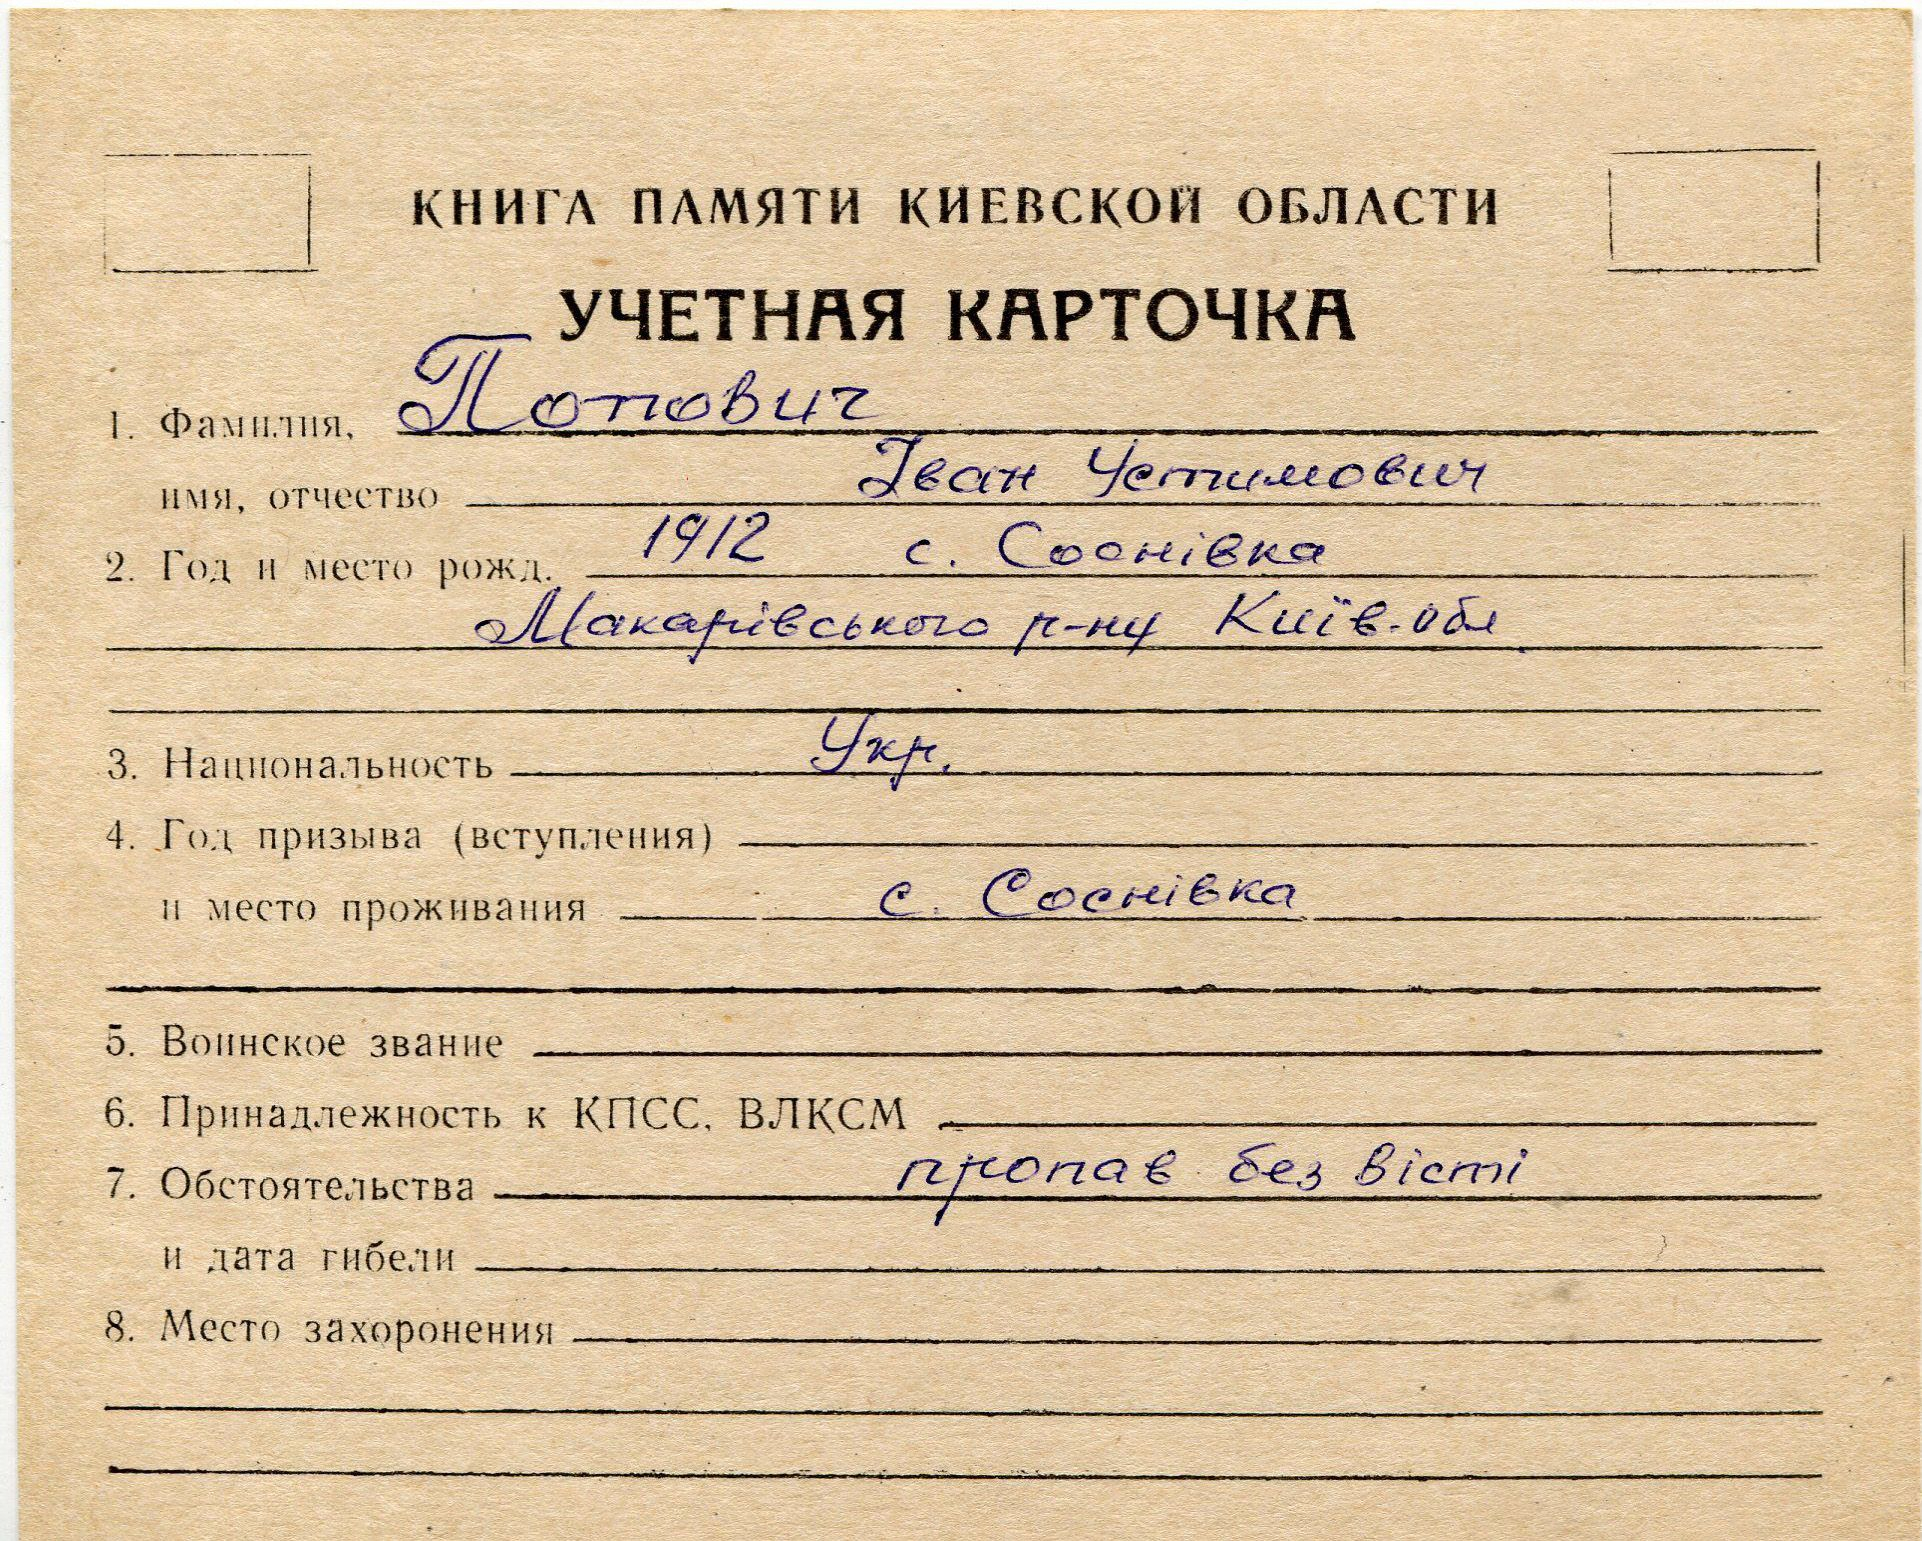 КНИГА ПАМЯТИ КИЕВСКОЙ ОБЛАСТИ
УЧЕТНАЯ КАРТОЧКА
1. Фамилия, Попович
имя, отчество Іван Устимович
2. Год и место рожд. 1912 с. Соснівка
Макарівського р-ну Київ-обл
3. Национальность Укр.
4. Год призыва (вступления)
и место проживания с. Соснівка
5. Воинское звание
6. Принадлежность к КПСС, ВЛКСМ
7. Обстоятельства пропав без вісті
и дата гибели
8. Место захоронения